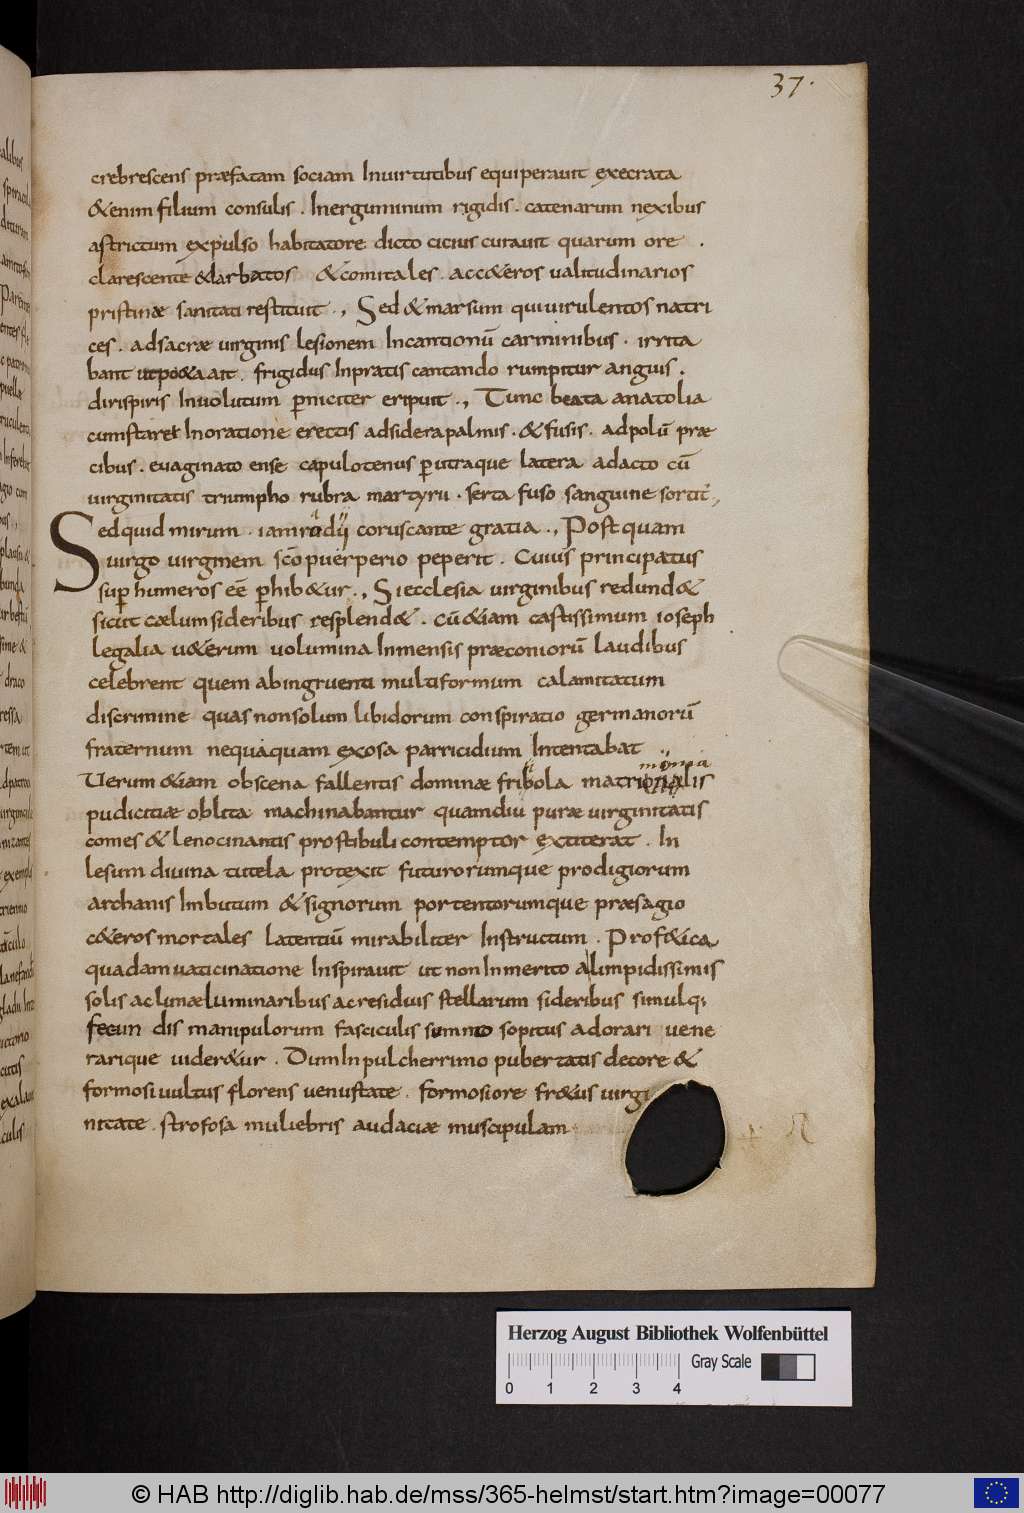 37.
crebrescens præfatam sociam Inuirtutibus equiperauit execrata
&enim filium consulis . Inerguminum rigidis . catenarum nexibus
astrictum expulso habitatore dicto cicius curauit quarum ore .
clarescente &larbatos &comitales . acc&eros ualitudinarios
pristinæ sanitati restituit ., Sed &marsum quiuirulentos natri
ces . adsacræ uirginis lesionem Incantionū carminibus . irrita
bant utpo&a ait . frigidus Inpratis cantando rumpitur anguis .
dirispiris Inuolutum pniciter eripuit ., Tunc beata anatolia
cumstar& Inoratione erectis adsidera palmis . &fusis . adpolū præ
cibus . euaginato ense capulotenus putraque latera adacto cū
uirginitatis triumpho rubra martyrii . serta fuso sanguine sortit.,
Sedquid mirum . iamrodii coruscante gratia ., Postquam
uirgo uirginem scō puerperio peperit . Cuius principatus
sup humeros eē phib&ur ., Si ecclesia uirginibus redund&
sicut cælumsideribus resplend& . cū &iam castissimum ioseph
legalia u&erum uolumina Inmensis præconiorū laudibus
celebrent quem abingruenti multiformum calamitatum
discrimine quas nonsolum libidorum conspiratio germanorū
fraternum nequaquam exosa parricidium Intentabat .,
Uerum &iam obscena fallentis dominæ fribola matrionalis
monia
pudicitiæ oblita machinabantur quamdiu puræ uirginitatis
comes & lenocinantis prostibuli contemptor extiterat . In
lesum diuina tutela protexit futurorumque prodigiorum
archanis Imbutum &signorum portentorumque præsagio
c&eros mortales latentiū mirabiliter Instructum . Prof&ica
quadam uaticinatione Inspirauit ut non Inmerito alimpidissimis
solis ac lunæ luminaribus acresiduis stellarum sideribus simulq;
fecun dis manipulorum fasciculis summo sopitus adorari uene
rarique uider&ur . Dum Inpulcherrimo pubertatis decore &
formosi uultus florens uenustate . formosiore fr&us uirgi
nitate . strofosa muliebris audaciæ muscipulam
Herzog August Bibliothek Wolfenbüttel
Gray Scale
0 1 2 3 4
© HAB http://diglib.hab.de/mss/365-helmst/start.htm?image=00077